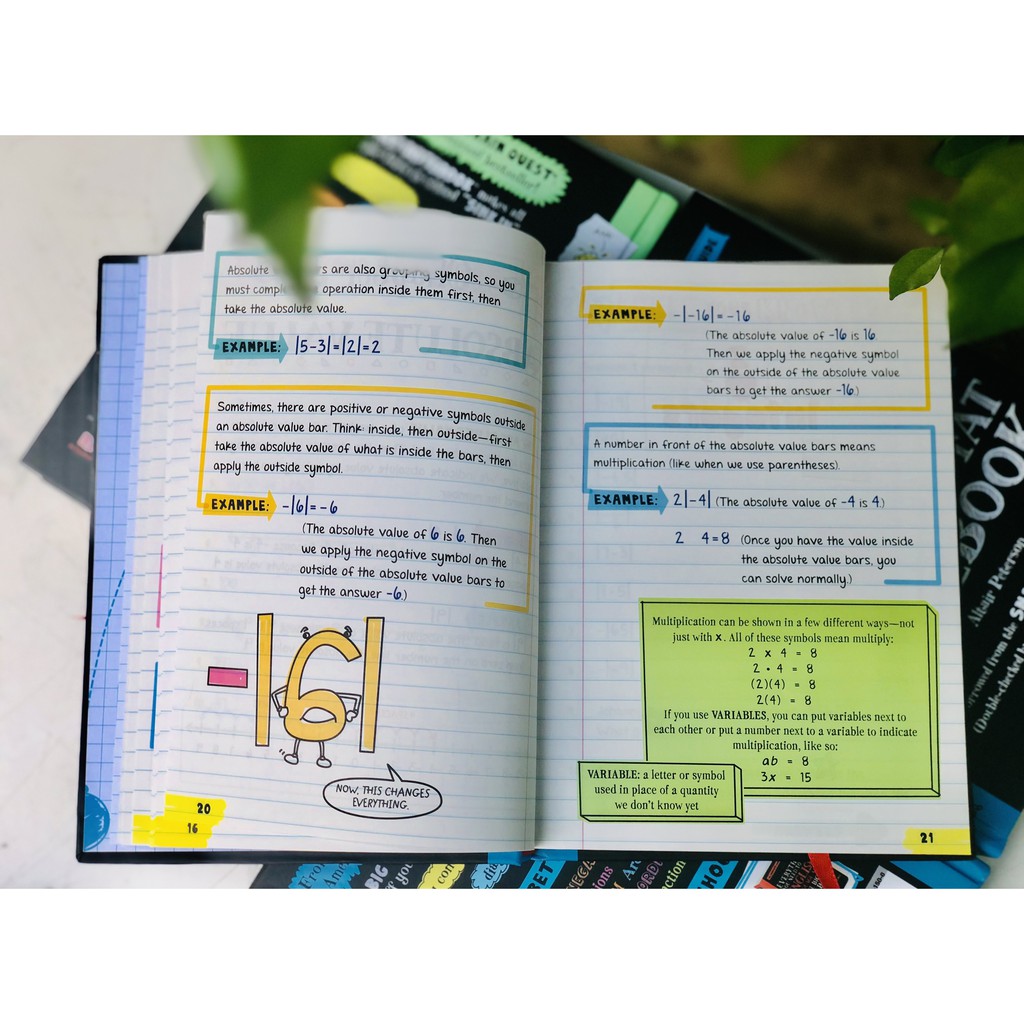 Absolute are also grouping symbols, so you
must operation inside them first, then
take the absolute value.
EXAMPLE: |5-3|=|2|=2
Sometimes, there are positive or negative symbols outside
an absolute value bar. Think: inside, then outside—first
take the absolute value of what is inside the bars, then
apply the outside symbol.
EXAMPLE: -|6|=-6
(The absolute value of 6 is 6. Then
we apply the negative symbol on the
outside of the absolute value bars to
get the answer -6.)
-|6|
NOW, THIS CHANGES
EVERYTHING.
20
16
EXAMPLE: -|-16|=-16
(The absolute value of -16 is 16.
Then we apply the negative symbol
on the outside of the absolute value
bars to get the answer -16.)
A number in front of the absolute value bars means
multiplication (like when we use parentheses).
EXAMPLE: 2|-4| (The absolute value of -4 is 4.)
2 4=8 (Once you have the value inside
the absolute value bars, you
can solve normally.)
Multiplication can be shown in a few different ways—not
just with x. All of these symbols mean multiply:
2 x 4 = 8
2 • 4 = 8
(2)(4) = 8
2(4) = 8
If you use VARIABLES, you can put variables next to
each other or put a number next to a variable to indicate
multiplication, like so:
ab = 8
3x = 15
VARIABLE: a letter or symbol
used in place of a quantity
we don't know yet
21
QUEST
bestseller!
BOOK
Altair Peterson
from the
(Double-checked
BIG